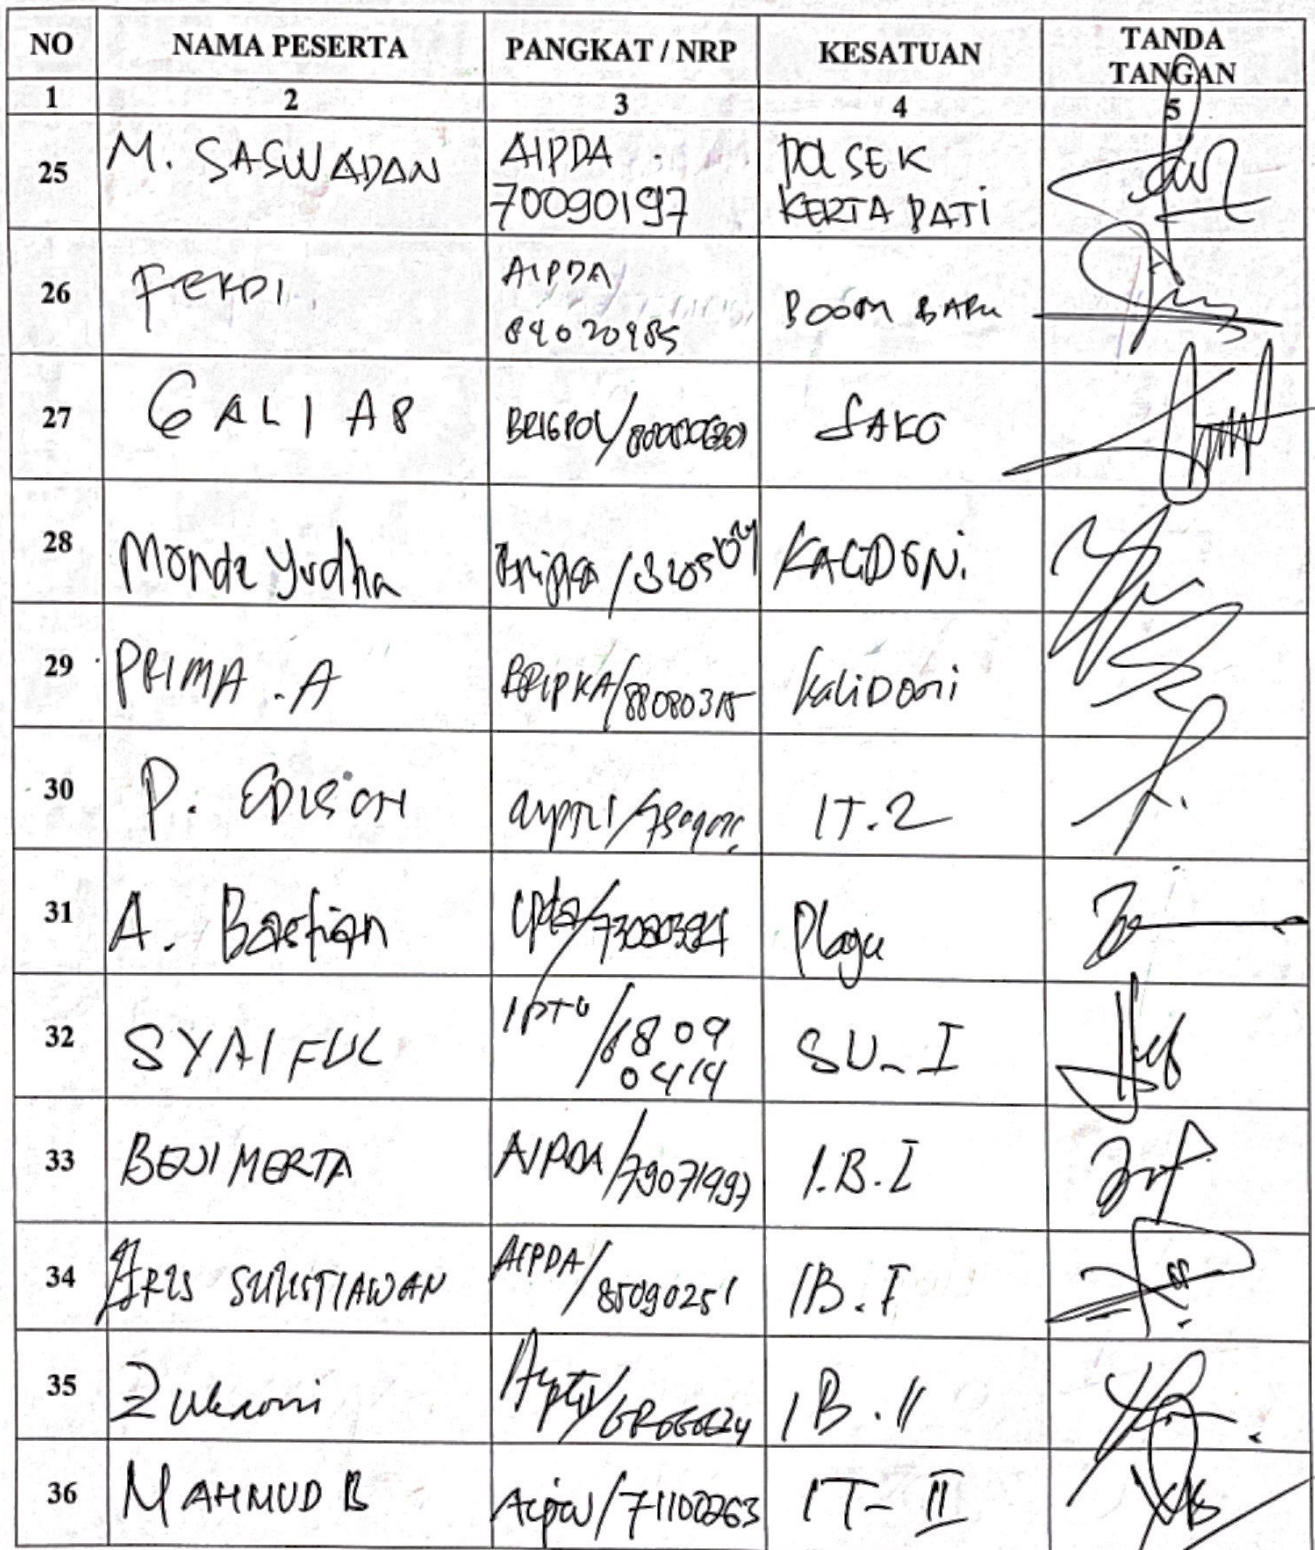 NO NAMA PESERTA PANGKAT / NRP KESATUAN TANDA TANGAN
1 2 3 4 5
25 M. SASWADAN AIPDA 70090197 POLSEK KERTA PATI
26 FERDI AIPDA 84020985 BOOM BARU
27 GALI AP BRIGPOL/ SAKO
28 Monde Yudha Bripka / KALIDONI.
29 PRIMA . A BRIPKA/88080315 KaliDoni
30 P. EDISON IT.2
31 A. Bastian Ipda/73080384 Plaju
32 SYAIFUL IPTU /6809 0414 SU-I
33 BENI MERTA AIPDA /79071997 I.B.I
34 ARIS SULISTIAWAN AIPDA/ 85090251 IB.I
35 IB.II
36 MAHMUD B Aiptu/71100263 IT-II